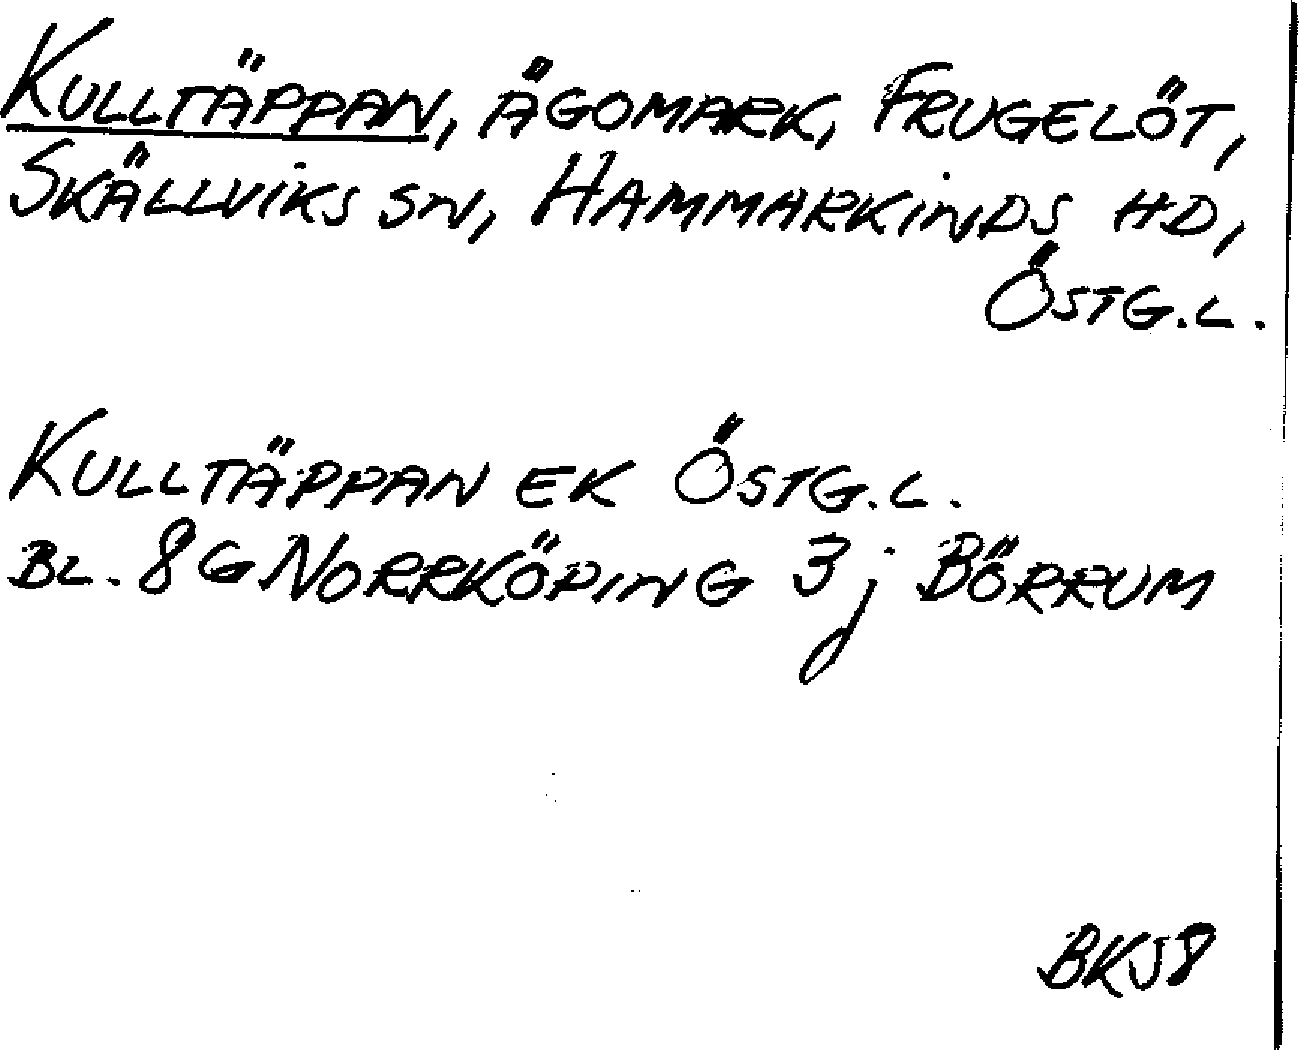 KULLTÄPPAN, ÄGOMARK, FRUGELÖT,
SKÄLLVIKS SN, HAMMARKINDS HD,
ÖSTG.L.
KULLTÄPPAN EK ÖSTG.L.
BL. 8G NORRKÖPING 3j BÖRRUM
BKJ8